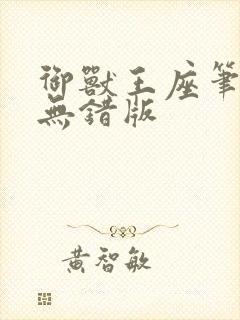 御獸王座筆
無錯版
黃智敏